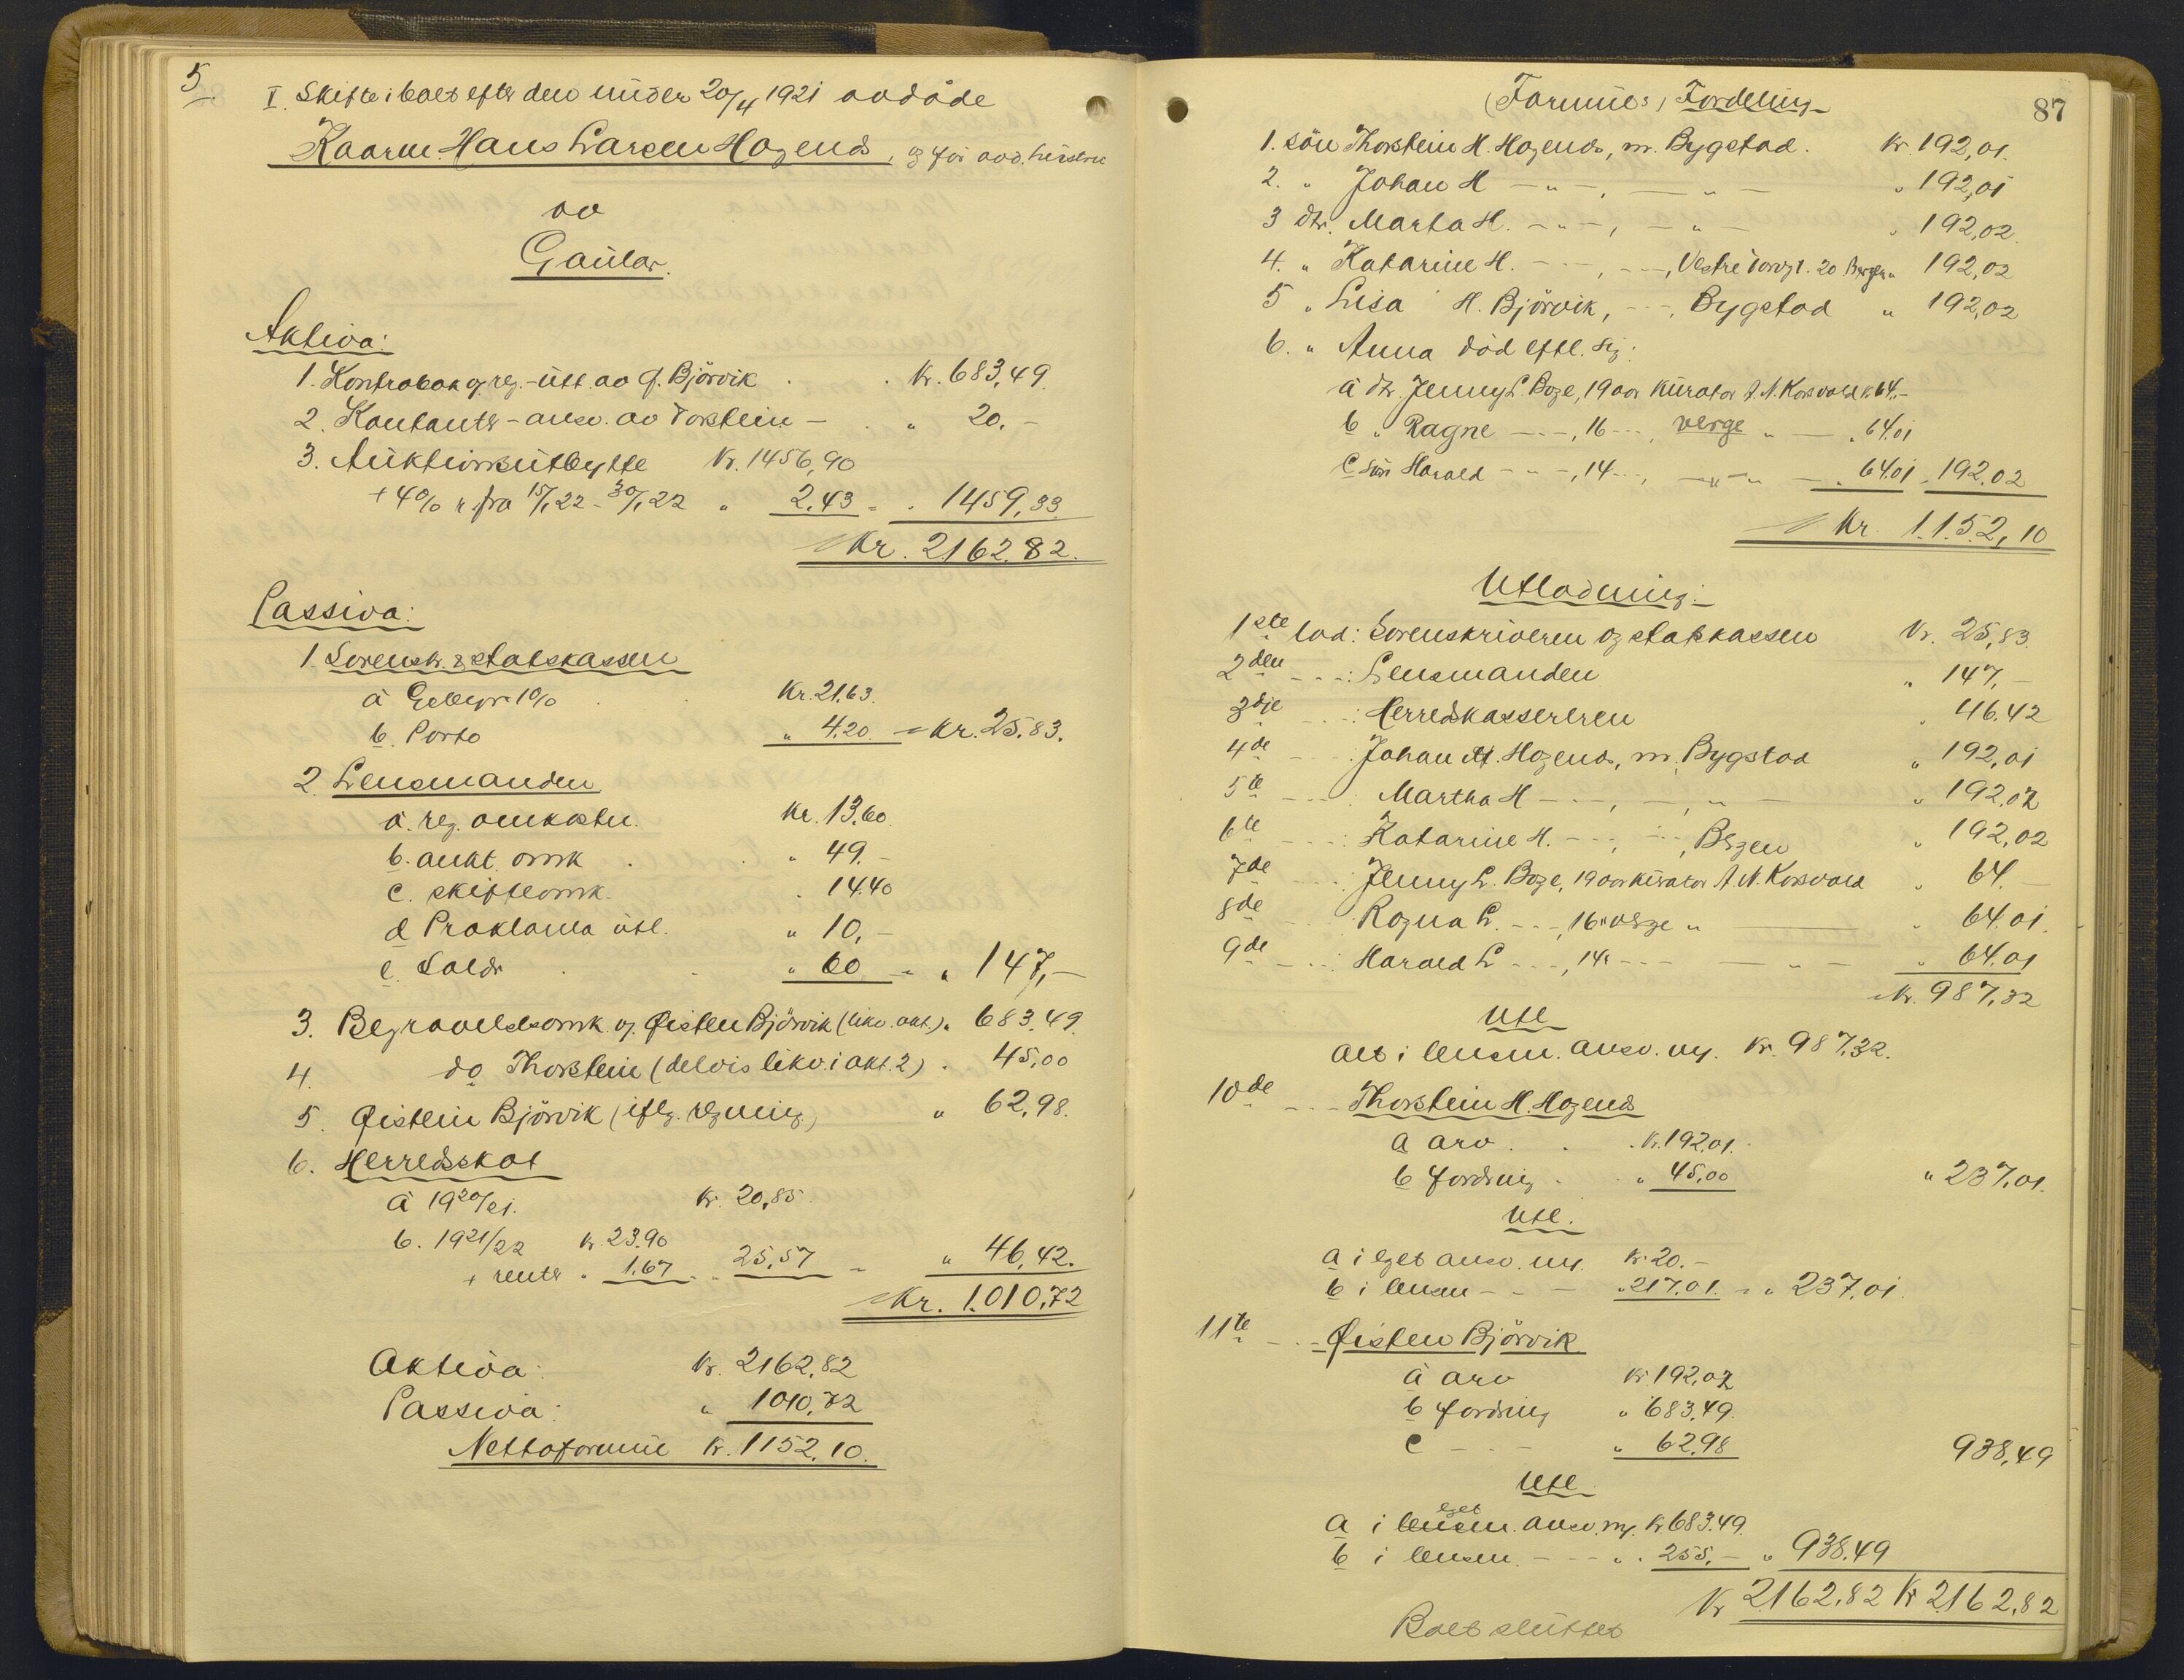 5
I. Skifte i boet efter den under 20/4 1921 avdöde
Kaarm. Hans Larsen Hogends, og för avd. hustru
av
Gaular.
Aktiva:
1. Kontrabok og reg.-utt. av Ø. Björvik . . Kr. 683,49.
2. Kontanter - ansv. av Torstein - . " 20,-
3. Auktionsutbytte Kr. 1456,90
+ 4% r. fra 15/1 22 - 30/1 22 " 2,43 = " 1459,33
Kr. 2162.82.
Passiva:
1. Sorenskr. & statskassen
a Gebyr 1% . . Kr. 21.63.
b. Porto " 4.20 = Kr. 25.83.
2. Lensmanden
a. reg. omkostn. Kr. 13.60.
b. aukt. omk . . " 49.-
c. skifteomk. . 14.40
d Proklama utl. " 10,-
e. Saldr . . " 60 = " 147,-
3. Begravelsesomk. og. Øisten Björvik (likv. akt.) " 683.49.
4. do Thorstein (delvis likv. i akt. 2) . 45,00
5. Øistein Björvik (iflg. regning) " 62,98.
6. Herredsskat
a 1920/21. Kr. 20,85.
b. 1921/22 Kr. 23.90
+ renter " 1.67 = " 25,57 = " 46,42.
Kr. 1.010,72
Aktiva: Kr. 2162,82
Passiva: " 1010,72
Nettoformue Kr. 1152,10.
87
(Formues) Fordeling
1. sön Thorstein H. Hogends, m. Bygstad. Kr. 192,01.
2. " Johan H - " - , - " - " 192,01
3 dtr. Marta H. - " - , - " - " 192,02.
4. " Katarine H. - - - , - - - , Vestre Torvgt. 20 Bergen " 192,02
5 " Lisa H. Björvik, - - - , Bygstad " 192,02
6. " Anna död eftl. sig:
a dtr. Jenny L. Boge, 19 aar kurator A. N. Korsvold Kr. 64,-
b " Ragne - - - , 16 - - - , verge " - " 64.01
c sön Harald - - - , 14 - - - , - " - " - " 64.01 = 192.02
Kr. 1.152,10
Utlodning:
1ste lod: Sorenskriveren og statskassen Kr. 25,83.
2den - - - : Lensmanden " 147,-
3dje - - - : Herredskassereren " 46.42
4de - - - : Johan H. Hogends, m. Bygstad " 192,01
5te - - - : Martha H - - - , - , " - " 192,02
6te - - - : Katarine H. - - - , - - - , Bergen " 192,02
7de - - - : Jenny L. Boge, 19 aar kurator A. N. Korsvold " 64.-
8de - - - : Ragna L. - - - , 16 " verge " - " 64.01.
9de - - - : Harald L - - - , 14 " - - - - " - " 64.01
Kr. 987,32
Utl
Alt i lensm. ansv. og. Kr. 987,32.
10de - - - Thorstein H. Hogends
a arv . . Kr. 192,01.
b fordring . . " 45,00 " 237,01.
Utl.
a i eget ansv. og. Kr. 20.-
b i lensm - - - " 217.01. = " 237,01.
11te - - - Øisten Björvik
a arv Kr. 192,02
b fordring " 683,49.
c - - - " 62,98 938,49
Utl.
eget
a i lensm. ansv. og. Kr. 683.49.
b i lensm. - - - " 255,- " 938.49
Kr 2162.82 Kr 2162,82
Boet sluttet